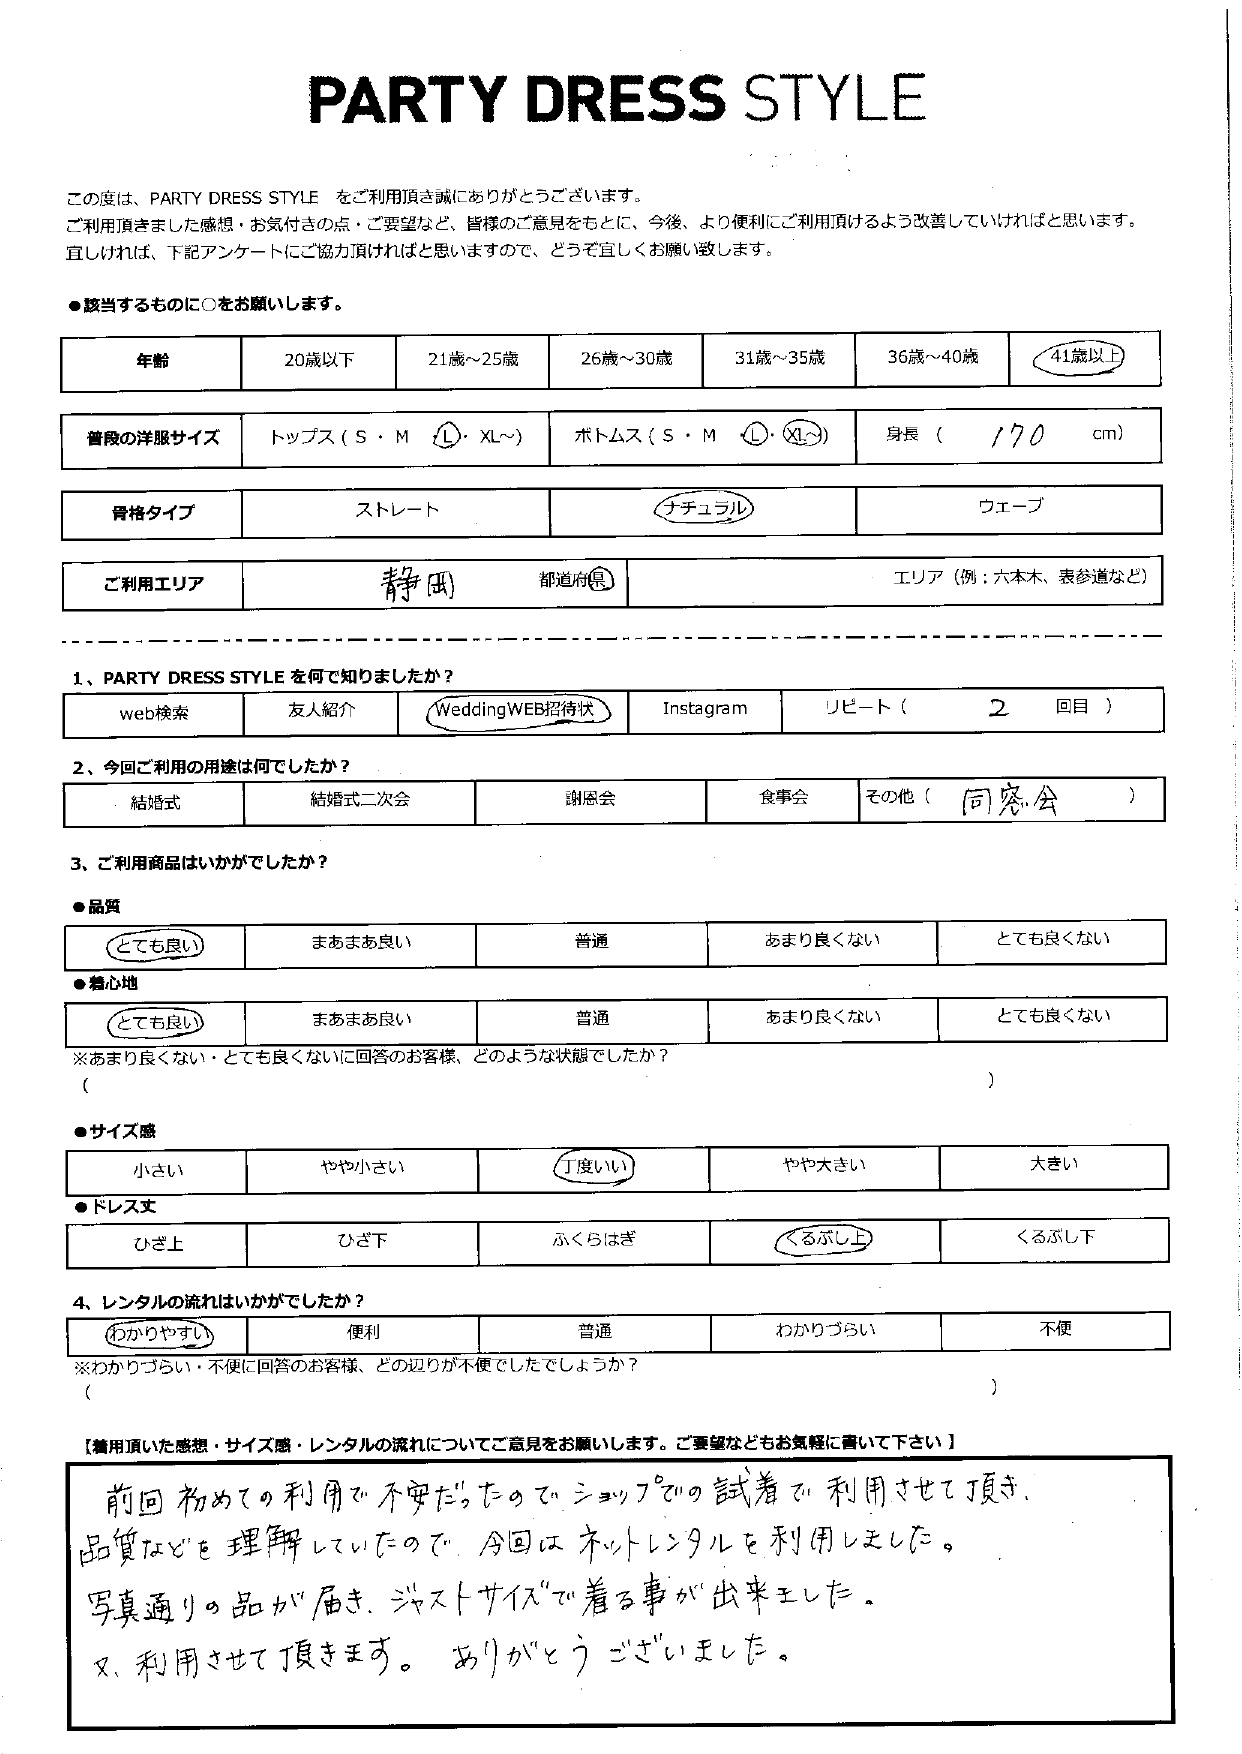 PARTY DRESS STYLE
この度は、PARTY DRESS STYLE をご利用頂き誠にありがとうございます。
ご利用頂きました感想・お気付きの点・ご要望など、皆様のご意見をもとに、今後、より便利にご利用頂けるよう改善していければと思います。
宜しければ、下記アンケートにご協力頂ければと思いますので、どうぞ宜しくお願い致します。
●該当するものに○をお願いします。
年齢 20歳以下 21歳～25歳 26歳～30歳 31歳～35歳 36歳～40歳 41歳以上
普段の洋服サイズ トップス ( S ・ M ・L・ XL～) ボトムス ( S ・ M ・L・ XL～) 身長 ( 170 cm)
骨格タイプ ストレート ナチュラル ウェーブ
ご利用エリア 静岡 都道府県 エリア（例：六本木、表参道など）
1、PARTY DRESS STYLE を何で知りましたか？
web検索 友人紹介 WeddingWEB招待状 Instagram リピート ( 2 回目 )
2、今回ご利用の用途は何でしたか？
結婚式 結婚式二次会 謝恩会 食事会 その他 ( 同窓会 )
3、ご利用商品はいかがでしたか？
●品質
とても良い まあまあ良い 普通 あまり良くない とても良くない
●着心地
とても良い まあまあ良い 普通 あまり良くない とても良くない
※あまり良くない・とても良くないに回答のお客様、どのような状態でしたか？
( )
●サイズ感
小さい やや小さい 丁度いい やや大きい 大きい
●ドレス丈
ひざ上 ひざ下 ふくらはぎ くるぶし上 くるぶし下
4、レンタルの流れはいかがでしたか？
わかりやすい 便利 普通 わかりづらい 不便
※わかりづらい・不便に回答のお客様、どの辺りが不便でしたでしょうか？
( )
【着用頂いた感想・サイズ感・レンタルの流れについてご意見をお願いします。ご要望などもお気軽に書いて下さい】
前回初めての利用で不安だったのでショップでの試着で利用させて頂き、
品質などを理解していたので、今回はネットレンタルを利用しました。
写真通りの品が届き、ジャストサイズで着る事が出来ました。
又、利用させて頂きます。 ありがとうございました。